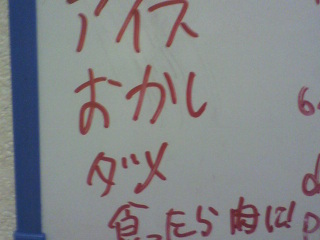 アイス
おかし
ダメ
食ったら肉に!